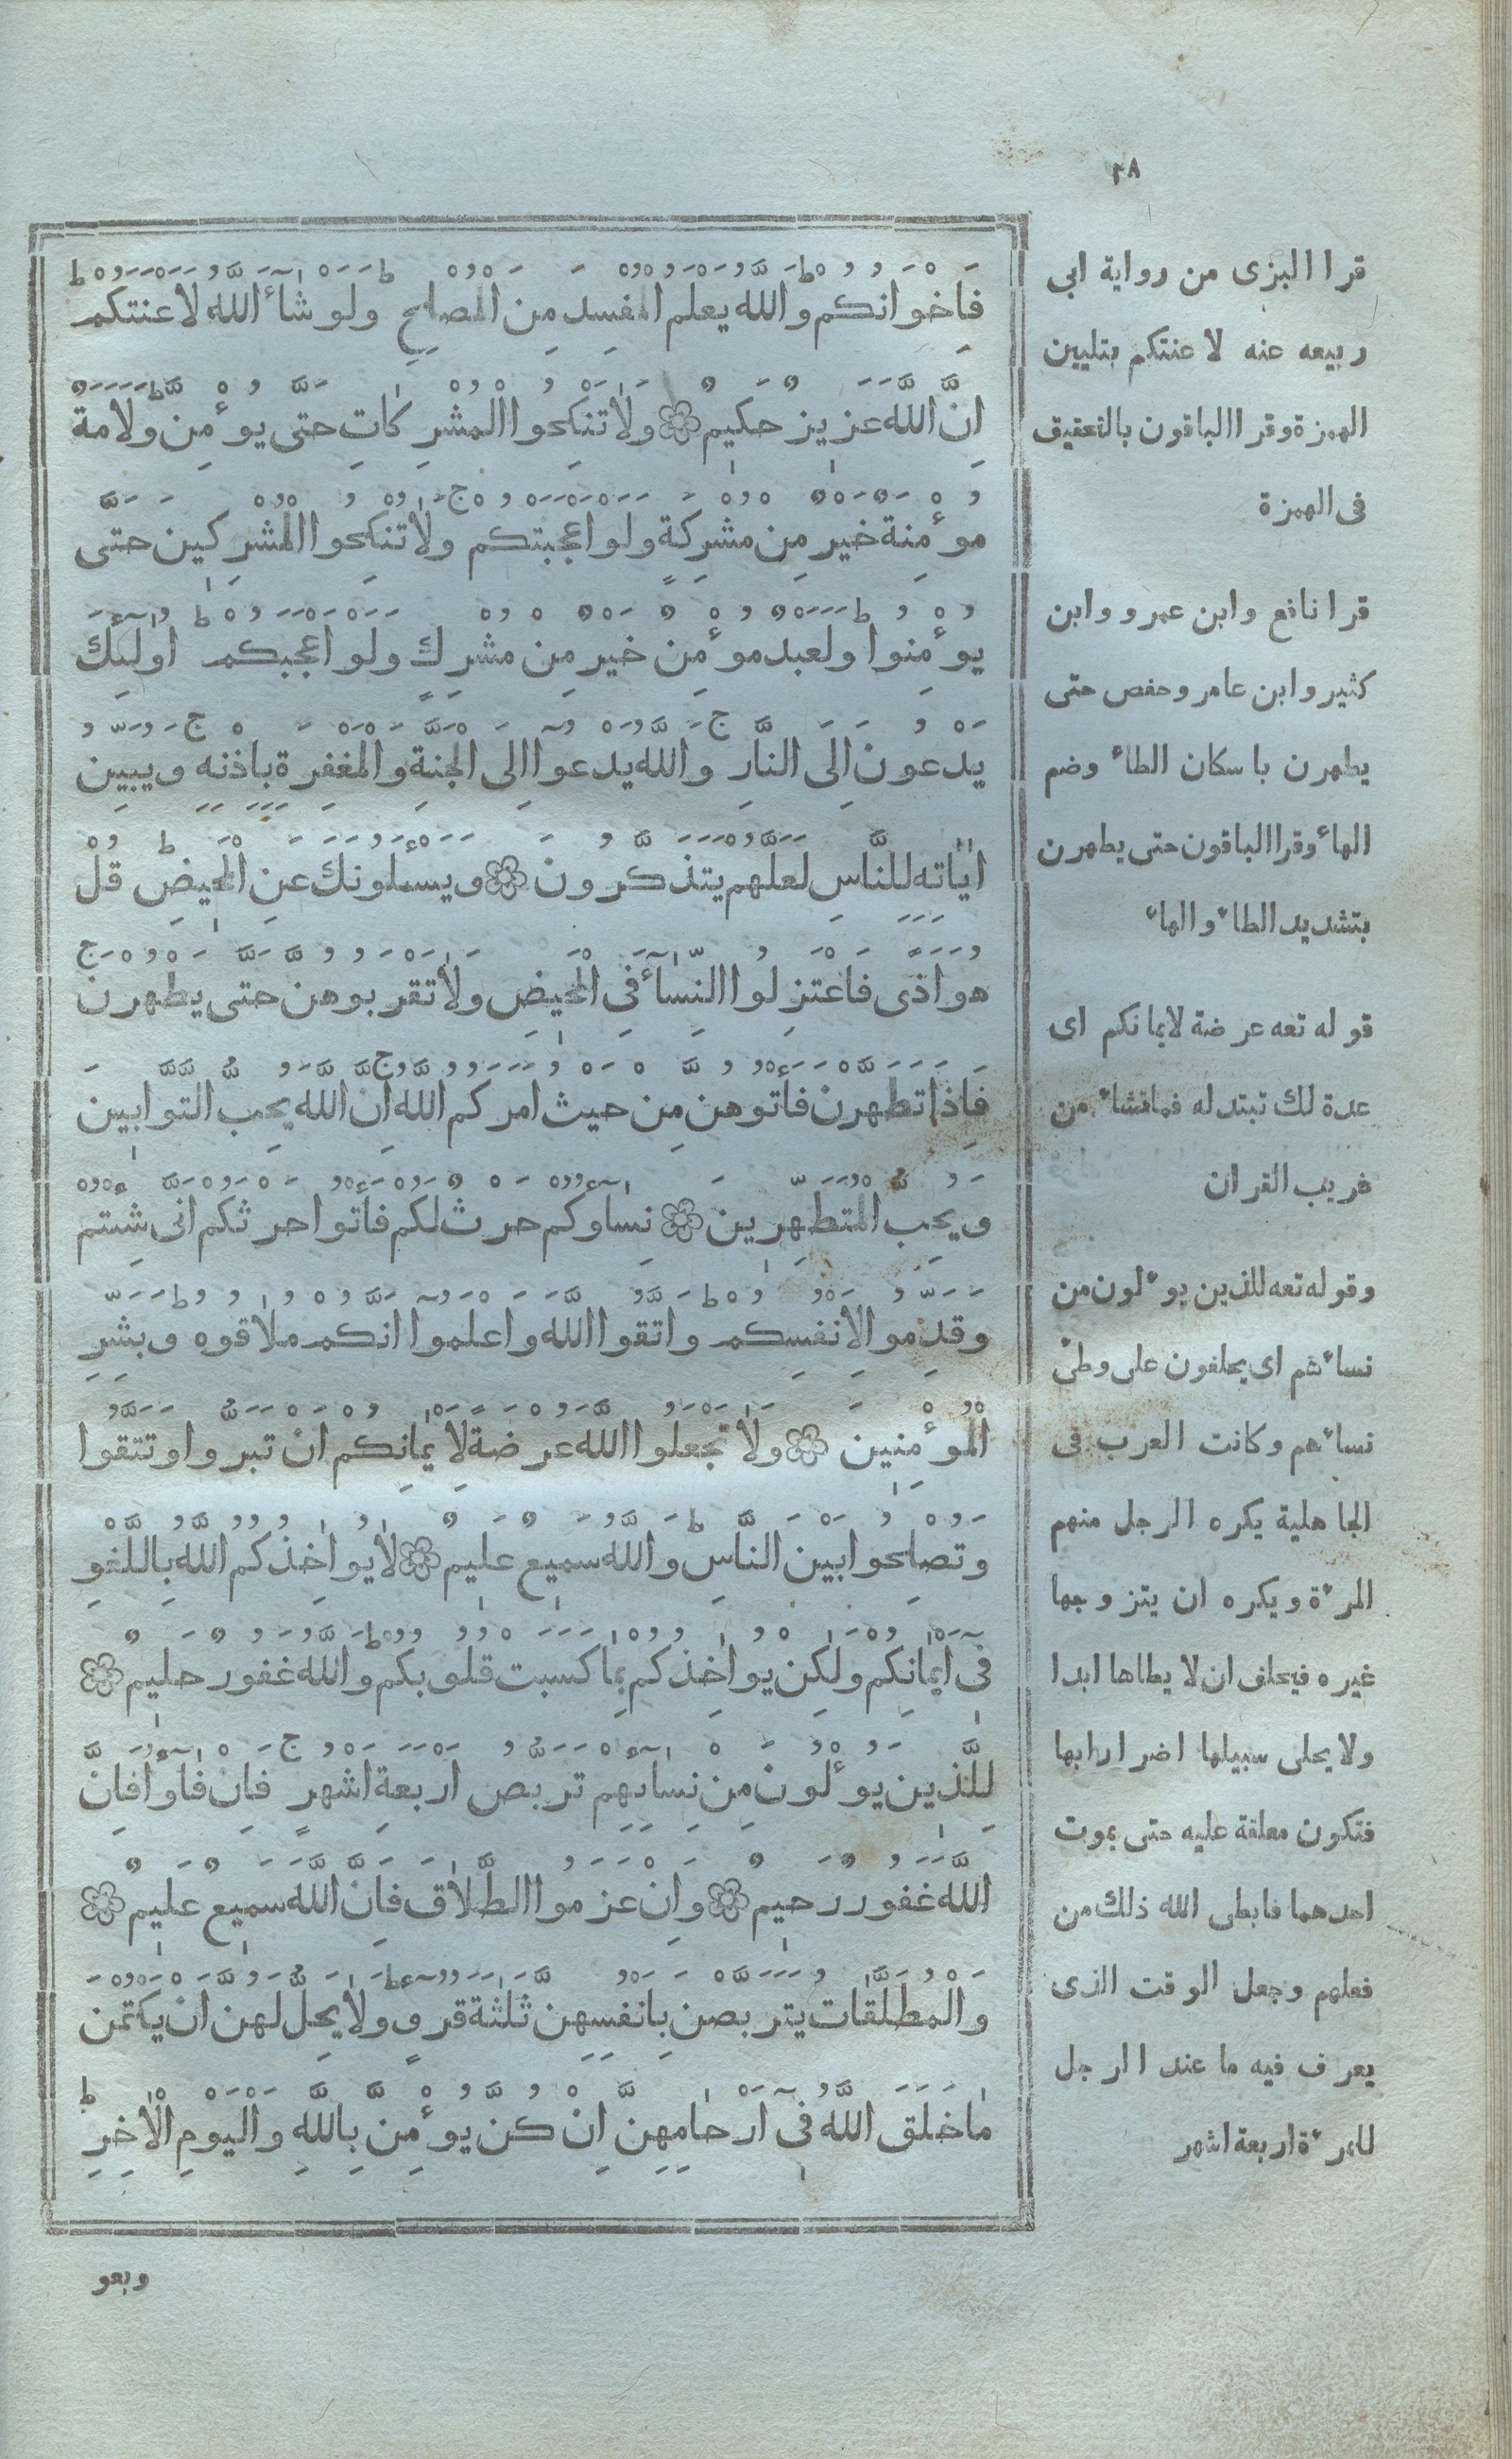 ٢٨
فَاِخْوَانُكُمْ وَاللّٰهُ يَعْلَمُ الْمُفْسِدَ مِنَ الْمُصْلِحِ ط وَلَوْ شَآءَ اللّٰهُ لَاَعْنَتَكُمْ ط
اِنَّ اللّٰهَ عَزِيزٌ حَكِيمٌ وَلَا تَنْكِحُوا الْمُشْرِكَاتِ حَتَّى يُؤْمِنَّ ط وَلَاَمَةٌ
مُؤْمِنَةٌ خَيْرٌ مِنْ مُشْرِكَةٍ وَلَوْ اَعْجَبَتْكُمْ ج وَلَا تُنْكِحُوا الْمُشْرِكِينَ حَتَّى
يُؤْمِنُوا ط وَلَعَبْدٌ مُؤْمِنٌ خَيْرٌ مِنْ مُشْرِكٍ وَلَوْ اَعْجَبَكُمْ ط اُولٰٓئِكَ
يَدْعُونَ اِلَى النَّارِ ج وَاللّٰهُ يَدْعُوٓا اِلَى الْجَنَّةِ وَالْمَغْفِرَةِ بِاِذْنِهِ ج وَيُبَيِّنُ
اٰيَاتِهِ لِلنَّاسِ لَعَلَّهُمْ يَتَذَكَّرُونَ وَيَسْئَلُونَكَ عَنِ الْمَحِيضِ ط قُلْ
هُوَ اَذًى فَاعْتَزِلُوا النِّسَآءَ فِى الْمَحِيضِ وَلَا تَقْرَبُوهُنَّ حَتَّى يَطْهُرْنَ ج
فَاِذَا تَطَهَّرْنَ فَأْتُوهُنَّ مِنْ حَيْثُ اَمَرَكُمُ اللّٰهُ ج اِنَّ اللّٰهَ يُحِبُّ التَّوَّابِينَ
وَيُحِبُّ الْمُتَطَهِّرِينَ نِسَآؤُكُمْ حَرْثٌ لَكُمْ فَأْتُوا حَرْثَكُمْ اَنَّى شِئْتُمْ
وَقَدِّمُوا لِاَنْفُسِكُمْ ط وَاتَّقُوا اللّٰهَ وَاعْلَمُوٓا اَنَّكُمْ مُلَاقُوهُ ط وَبَشِّرِ
الْمُؤْمِنِينَ وَلَا تَجْعَلُوا اللّٰهَ عُرْضَةً لِاَيْمَانِكُمْ اَنْ تَبَرُّوا وَتَتَّقُوا
وَتُصْلِحُوا بَيْنَ النَّاسِ ط وَاللّٰهُ سَمِيعٌ عَلِيمٌ لَا يُؤَاخِذُكُمُ اللّٰهُ بِاللَّغْوِ
فِىٓ اَيْمَانِكُمْ وَلٰكِنْ يُؤَاخِذُكُمْ بِمَا كَسَبَتْ قُلُوبُكُمْ ط وَاللّٰهُ غَفُورٌ حَلِيمٌ
لِلَّذِينَ يُؤْلُونَ مِنْ نِسَآئِهِمْ تَرَبُّصُ اَرْبَعَةِ اَشْهُرٍ ج فَاِنْ فَآؤُ فَاِنَّ
اللّٰهَ غَفُورٌ رَحِيمٌ وَاِنْ عَزَمُوا الطَّلَاقَ فَاِنَّ اللّٰهَ سَمِيعٌ عَلِيمٌ
وَالْمُطَلَّقَاتُ يَتَرَبَّصْنَ بِاَنْفُسِهِنَّ ثَلٰثَةَ قُرُوٓءٍ ط وَلَا يَحِلُّ لَهُنَّ اَنْ يَكْتُمْنَ
مَا خَلَقَ اللّٰهُ فِىٓ اَرْحَامِهِنَّ اِنْ كُنَّ يُؤْمِنَّ بِاللّٰهِ وَالْيَوْمِ الْاٰخِرِ ط
قرا البزى من رواية ابى
ربيعه عنه لاعنتكم بتليين
الهمزة وقرا الباقون بالتحقيق
فى الهمزة
قرا نافع وابن عمرو وابن
كثير وابن عامر وحفص حتى
يطهرن باسكان الطاء وضم
الهاء وقرا الباقون حتى يطهرن
بتشديد الطاء والهاء
قوله تعه عرضة لايمانكم اى
عدة لك تبتدله فماتشاء من
غريب القران
وقوله تعه للذين يوءلون من
نساءهم اى يحلفون على وطئ
نساءهم وكانت العرب فى
الجاهلية يكره الرجل منهم
المرءة ويكره ان يتزوجها
غيره فيحلف ان لا يطاها ابدا
ولا يحلى سبيلها اضرارابها
فتكون معلقة عليه حتى يموت
احدهما فابطى الله ذلك من
فعلهم وجعل الوقت الذى
يعرف فيه ما عند الرجل
للمرءة اربعة اشهر
وبعو